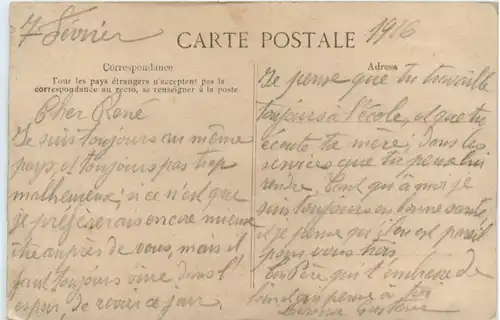 7 Février
CARTE POSTALE
1916
Correspondance
Tous les pays étrangers n'acceptent pas la
correspondance au recto, se renseigner à la poste
Cher René
Je suis toujours au même
pays, et toujours pas trop
malheureux; si ce n'est que
je préfèrerais encore mieux
être auprès de vous, mais il
faut toujours vivre dans l'
espoir, de revoir ce jour.
Adresse
Je pense que tu travaille
toujours à l'école, et que tu
écoute ta mère; dans les
services que tu peux lui
rendre. Tant qu'à moi je
suis toujours en bonne santé,
et je pense qu'il en est pareil
pour vous trois
Ton Père qui t'embrasse de
loin qui pense à toi
Gustave